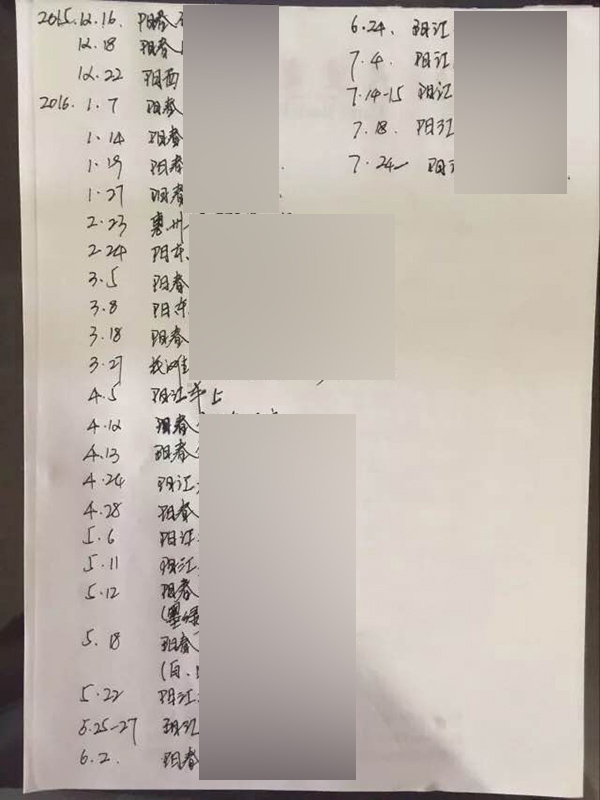 2015.12.16. 阳春
12.18 阳春
12.22 阳西
2016. 1.7 阳春
1.14 阳春
1.19 阳春
1.27 阳春
2.23 惠州
2.24 阳东
3.5 阳春
3.8 阳东
3.18 阳春
3.27
4.5 阳江车上
4.12 阳春
4.13 阳春
4.24 阳江
4.28 阳春
5.6 阳江
5.11 阳江
5.12 阳春
(墨绿
5.18 阳春
(白、
5.22 阳江
5.25-27 阳江
6.2. 阳春
6.24. 阳江
7.4. 阳江
7.14-15 阳江
7.18. 阳江
7.24 阳江